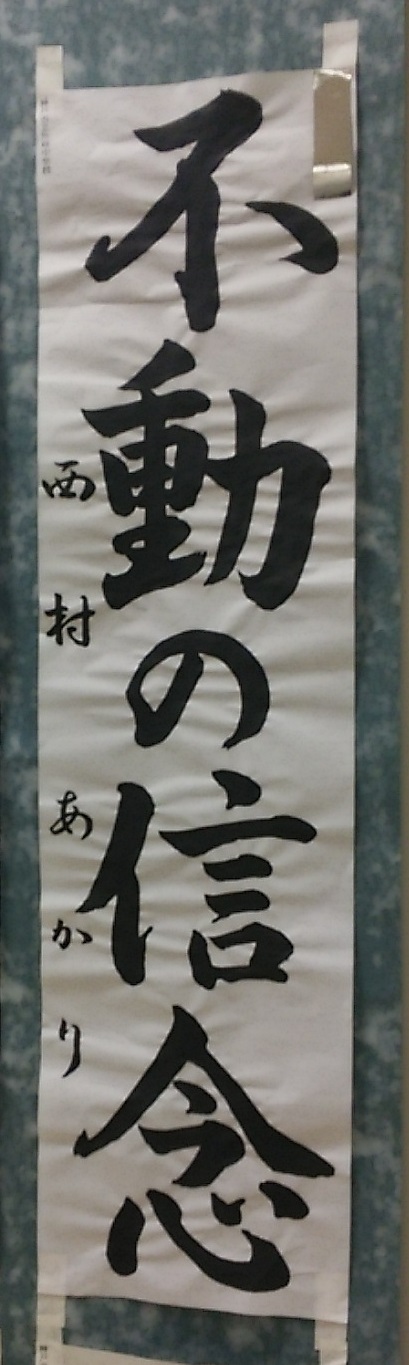 不動の信念
西村あかり